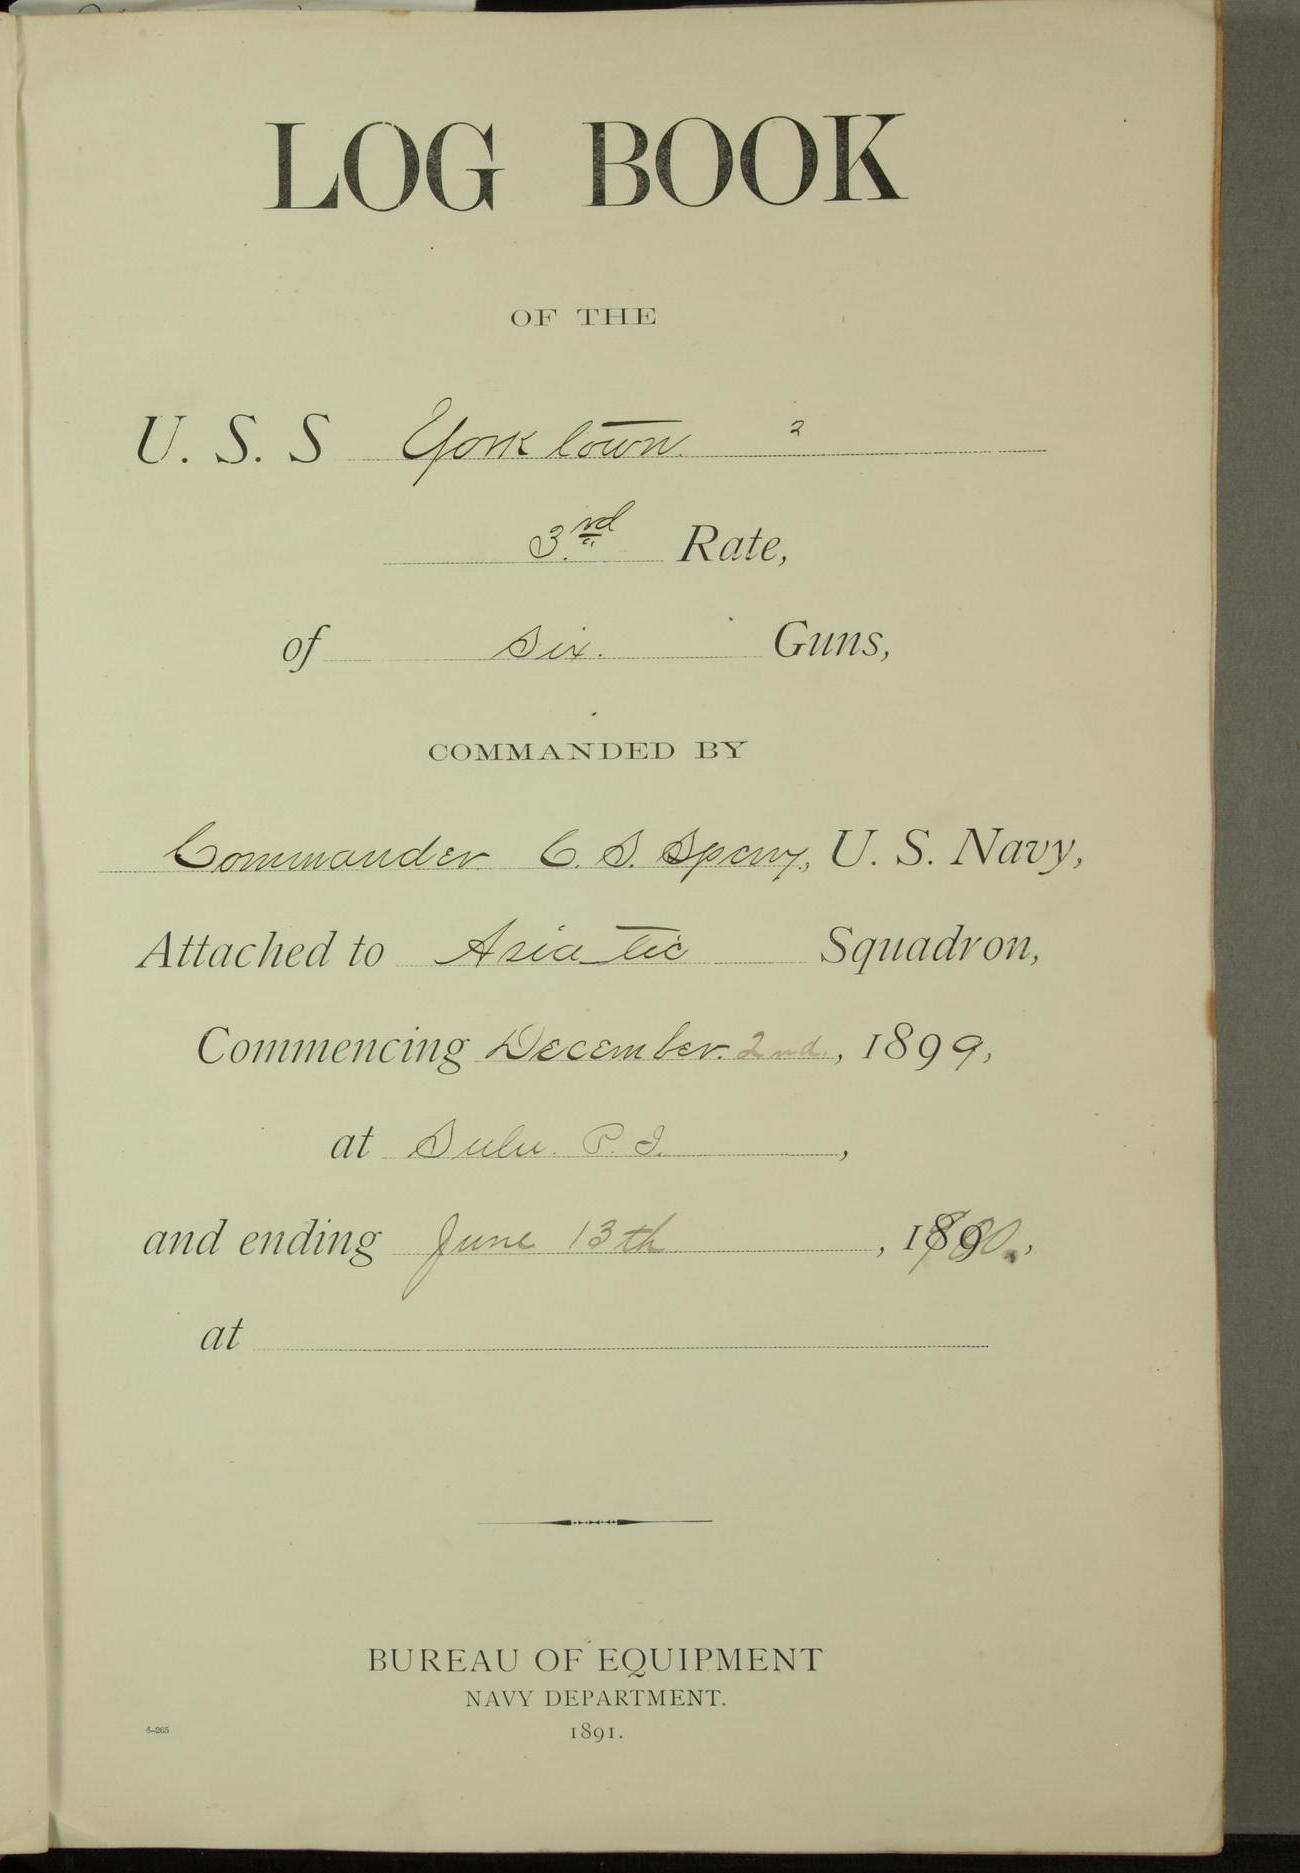 LOG BOOK
OF THE
U. S. S Yorktown. 2
3.rd Rate,
of Six. Guns,
COMMANDED BY
Commander C. S. Sperry, U. S. Navy,
Attached to Asiatic Squadron,
Commencing December. 2nd., 1899,
at Sulu. P. I.,
and ending June 13th, 1900.,
at
BUREAU OF EQUIPMENT
NAVY DEPARTMENT.
1891.
4-265